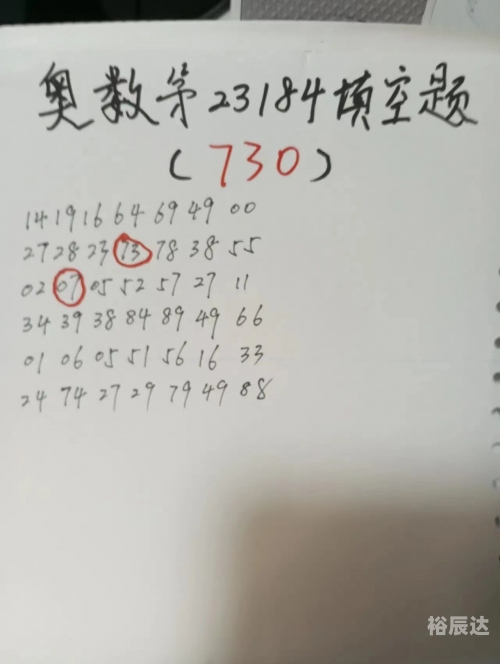 奥数第23184填空题
(730)
14 19 16 64 69 49 00
27 28 23 73 78 38 55
02 07 05 52 57 27 11
34 39 38 84 89 49 66
01 06 05 51 56 16 33
24 74 27 29 79 49 88
裕辰达